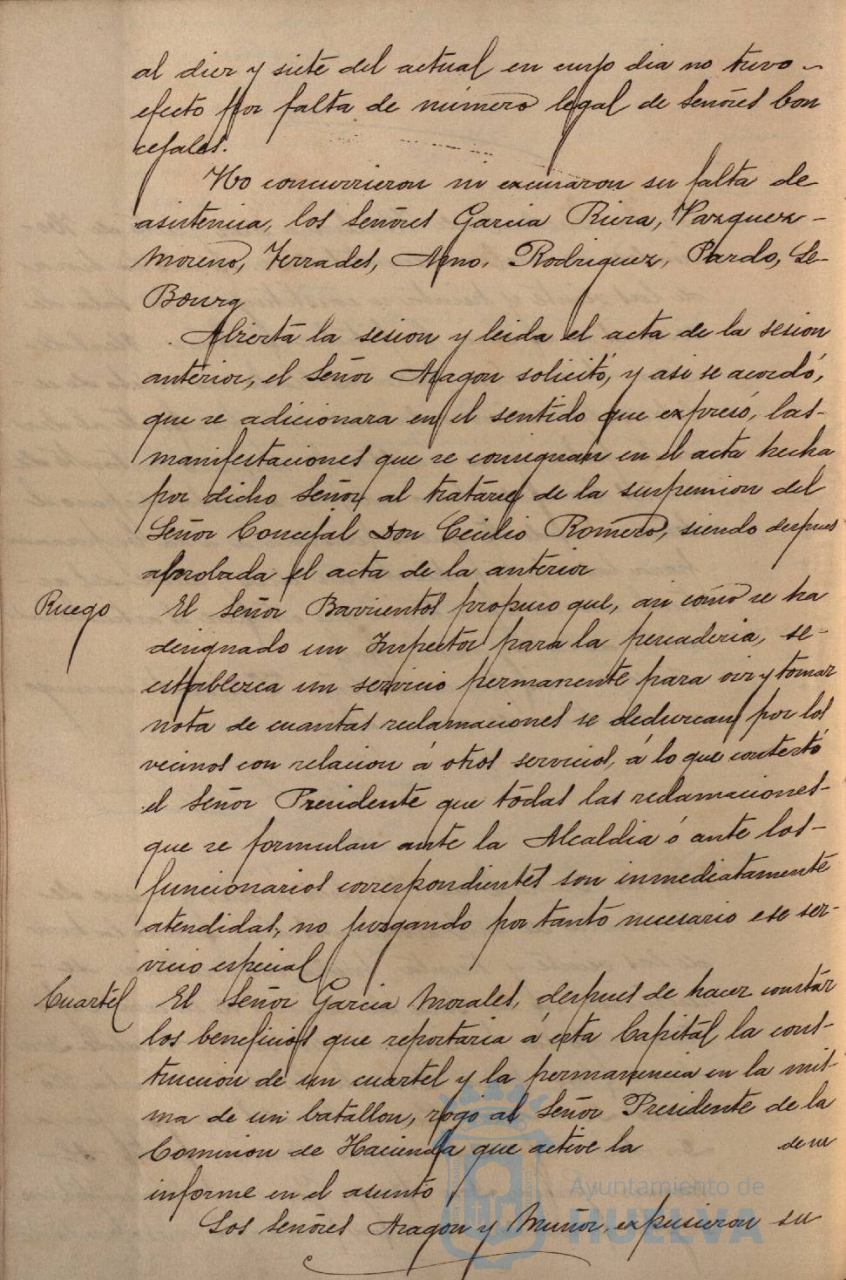 al diez y siete del actual en cuyo dia no tuvo -
efecto por falta de número legal de Señores Con
cejales.
No concurrieron ni excusaron su falta de
asistencia, los Señores Garcia Riera, Vazquez -
Moreno, Terrades, Rodriguez, Pardo, Le-
Bourg
Abierta la sesion y leida el acta de la sesion
anterior, el Señor Aragon solicitó, y asi se acordó,
que se adicionara en el sentido que expresó, las-
manifestaciones que se consignan en el acta hecha
por dicho Señor al tratarse de la suspension del
Señor Concejal Don Cecilio Romero, siendo despues
aprobada el acta de la anterior
Ruego
El Señor Barrientos propuso que, asi como se ha
designado un Inspector para la pescaderia, se-
establezca un servicio permanente para oir y tomar
nota de cuantas reclamaciones se deduzcan por los
vecinos con relacion á otros servicios, á lo que contestó
el Señor Presidente que todas las reclamaciones-
que se formulan ante la Alcaldia ó ante los-
funcionarios correspondientes son inmediatamente
atendidas, no juzgando por tanto necesario ese ser-
vicio especial
Cuartel
El Señor Garcia Morales, despues de hacer constar
los beneficios que reportaria á esta Capital la cons-
truccion de un cuartel y la permanencia en la mis-
ma de un batallon, rogó al Señor Presidente de la
Comision de Hacienda que active la de su
informe en el asunto
Los Señores Aragon y Muñoz, expusieron su
Ayuntamiento de
HUELVA